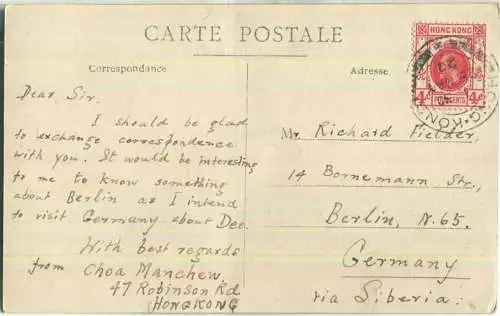 CARTE POSTALE
Correspondance
Adresse
HONG KONG
4c
4c
Dear Sir,
I should be glad
to exchange correspondence
with you. It would be interesting
to me to know something
about Berlin as I intend
to visit Germany about Dec.
With best regards
from Choa Manchew.
47 Robinson Rd
HONGKONG
Mr. Richard Fielder,
14 Bornemann Str.,
Berlin, N.65.
Germany
via Siberia.